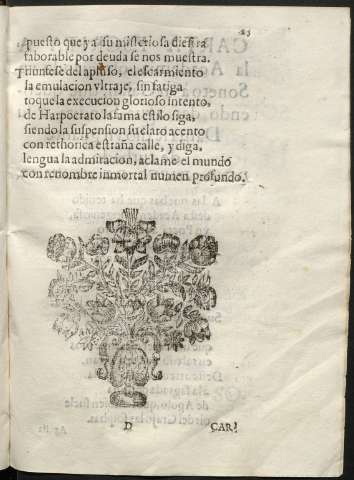 25
puesto que ya su misteriosa diestra
faborable por deuda se nos muestra.
Triunfese del aplauso, el escarmiento
la emulacion vltraje, sin fatiga
toque la execucion glorioso intento,
de Harpocrato la fama estilo siga,
siendo la suspension su claro acento
con rethorica estraña calle, y diga,
lengua la admiracion, aclame el mundo
con renombre inmortal numen profundo.
D
CAR-